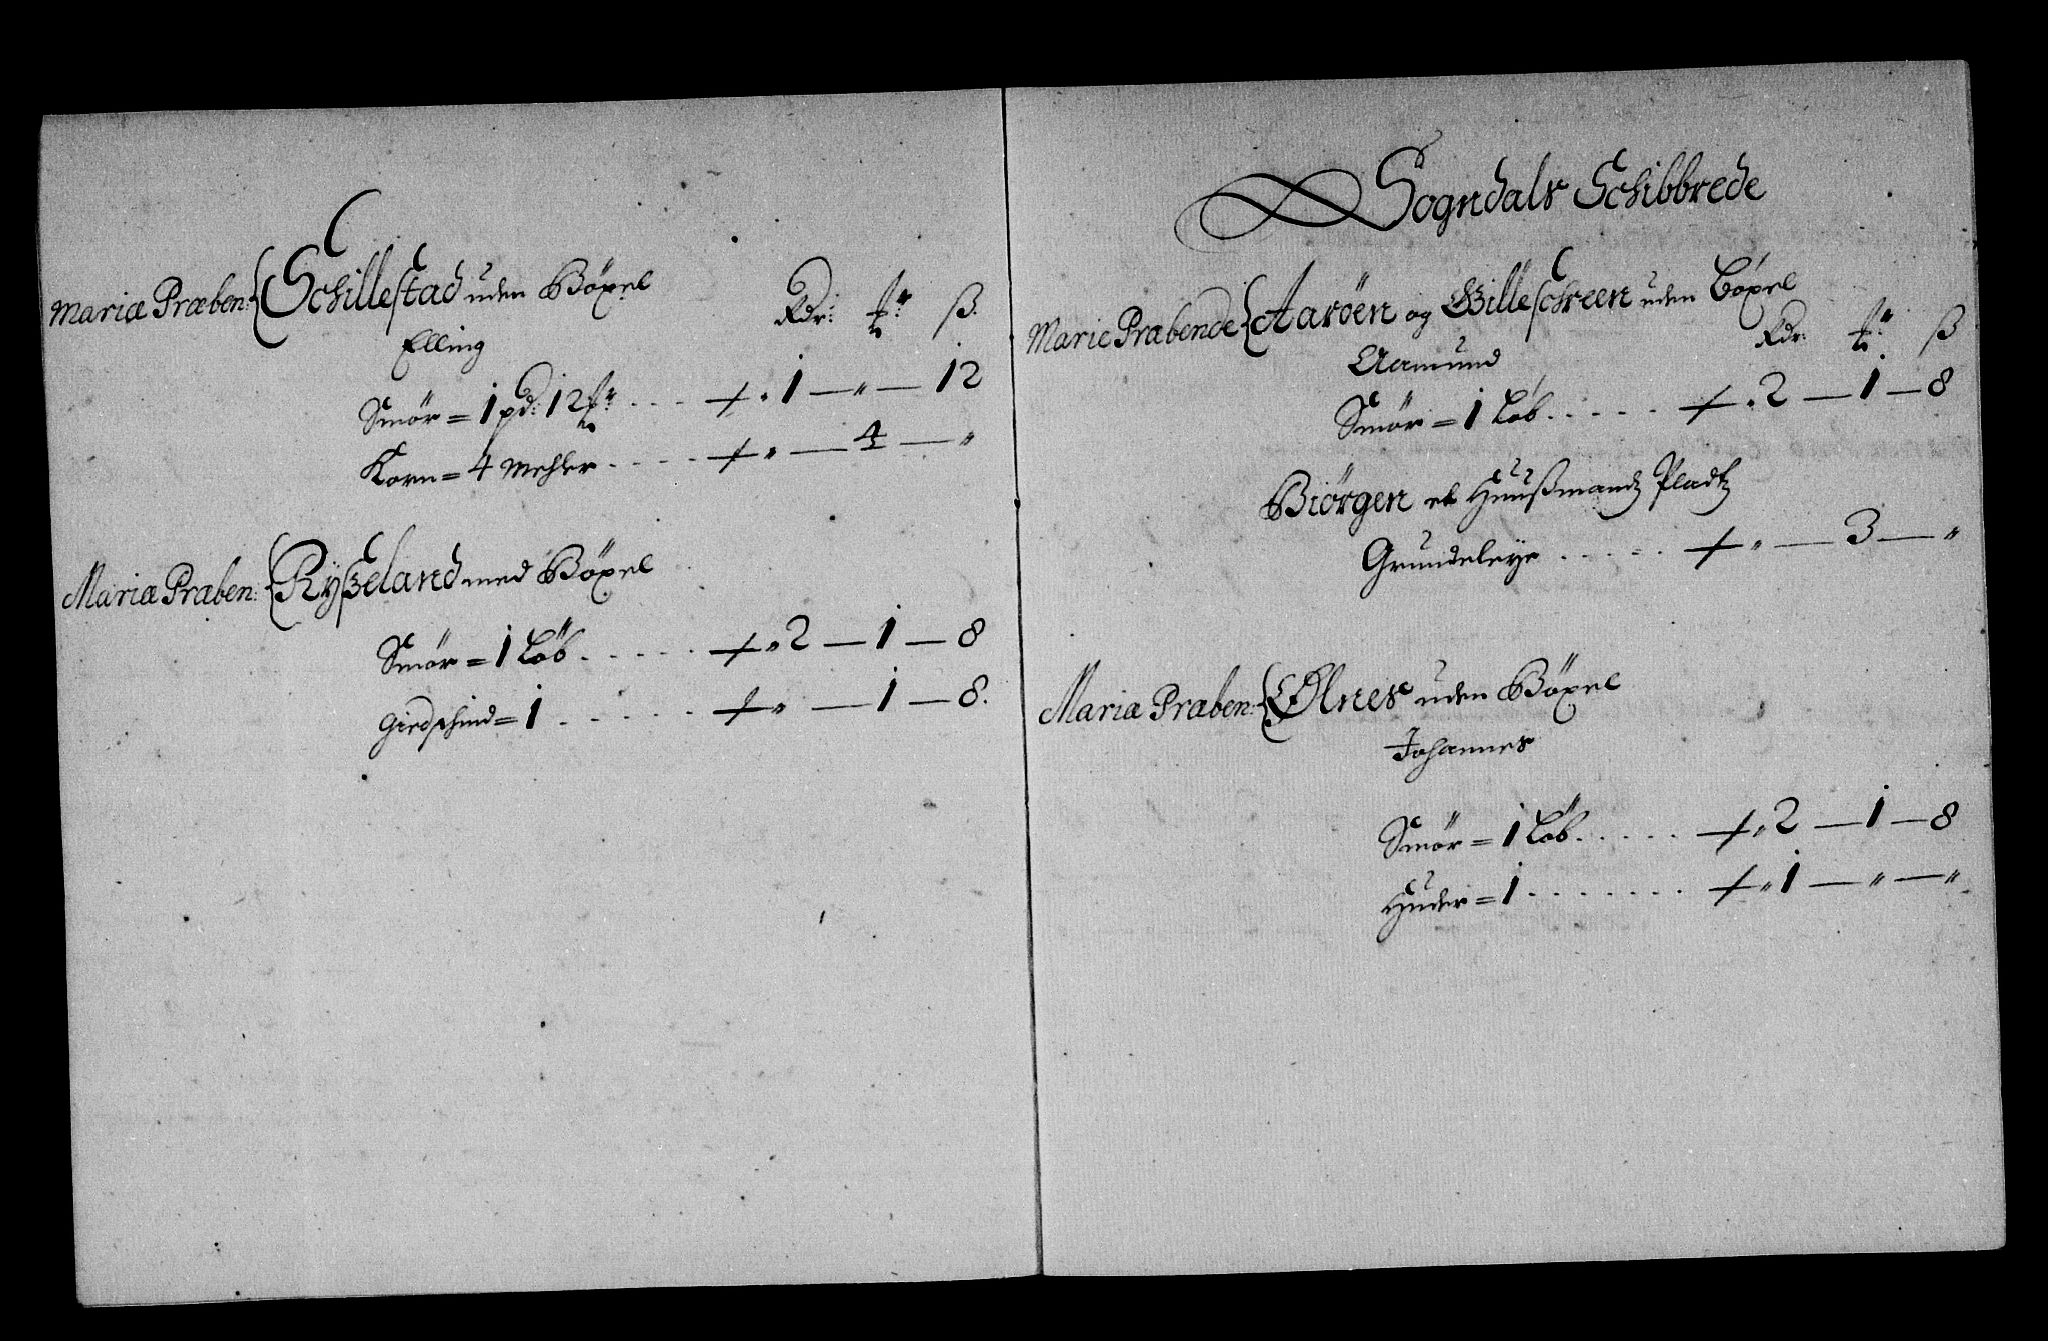 Mariæ Præben: { Schillestad uden Böxel
Rdr: ß.
Elling
Smör = 1 pd: 12 ... + " 1 — " — 12
Korn = 4 Mehler .... + " — 4 — "
Mariæ Præben: { Rÿßeland med Böxel
Smör = 1 Löb ..... + " 2 — 1 — 8
Giedschind = 1 ...... + " — 1 — 8.
Sogndals Schibbrede
Marie Præbende { Aaröen og Gilleschreen uden Böxel
Rdr: ß
Aamund
Smör = 1 Löb ..... + " 2 — 1 — 8
Biörgen et Huußmandz Pladtz
Grundeleye ..... + " — 3 — "
Mariæ Præben: { Ølnes uden Böxel
Johannes
Smör = 1 Löb ..... + " 2 — 1 — 8
Huder = 1 ....... + " 1 — " — "